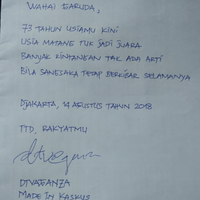 WAHAI GARUDA,
73 TAHUN USIAMU KINI
USIA MATANG TUK JADI JUARA
BANYAK RINTANGAN TAK ADA ARTI
BILA SANGSAKA TETAP BERKIBAR SELAMANYA
DJAKARTA, 14 AGUSTUS TAHUN 2018
TTD, RAKYATMU
DTVAGANZA
MADE IN KASKUS